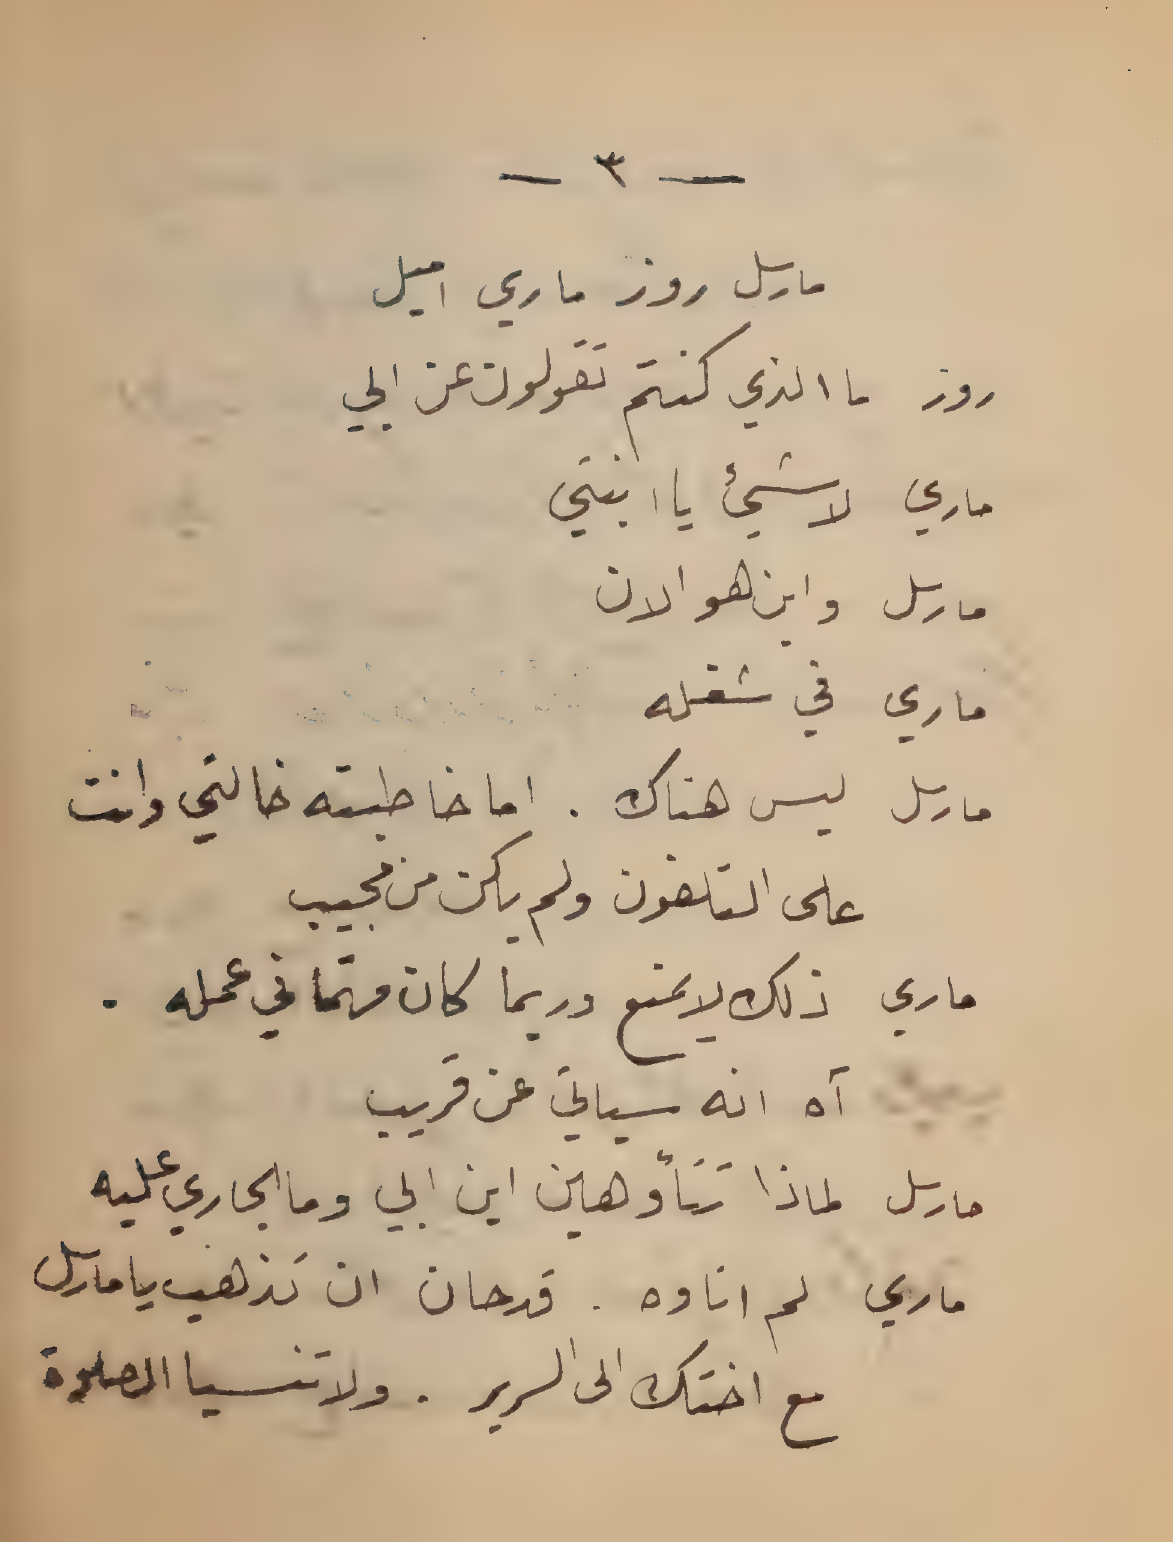 — ٣ —
مارسل روز ماري اميل
روز ما الذي كنتم تقولون عن ابي
ماري لا شيئ يا ابنتي
مارسل واين هو الان
ماري في شغله
مارسل ليس هناك . اما خاطبته خالتي وانت
على التلفون ولم يكن من مجيب
ماري ذلك لا يمنع وربما كان مهتما في عمله .
آه انه سياتي عن قريب
مارسل لماذا تتأوهين اين ابي وما الجاري عليه
ماري لم اتاوه . قد حان ان تذهب يا مارسل
مع اختك الى السرير . ولا تنسيا الصلوة